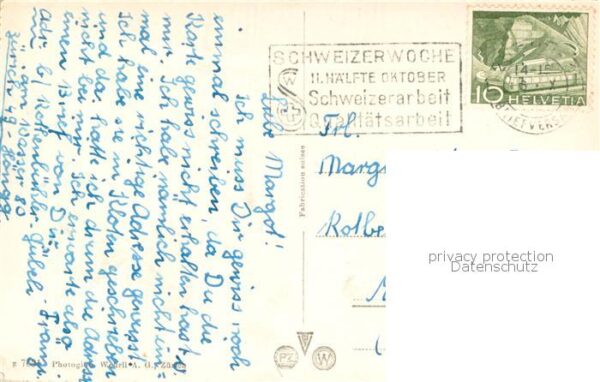 Liebe Margot!
ich muss Dir gewiss noch
einmal schreiben, da Du die
Karte gewiss nicht erhalten hast v.
mir. Ich habe nämlich nicht ein=
mal eine richtige Adresse gewusst
Ich habe sie in Kloten geschrieben
und da hatte ich drum die Adresse
nicht bei mir. Ich erwarte also
einen Brief von Dir
adr. b/
am Wasser 80
Zürich 49 - Höngg
SCHWEIZERWOCHE
II. HÄLFTE OKTOBER
Schweizerarbeit
Qualitätsarbeit
10 HELVETIA
Frl.
Marg
Kolbe
Fabrication suisse
Photogl Wehrli A. G. Zürich
PZ
W
privacy protection
Datenschutz